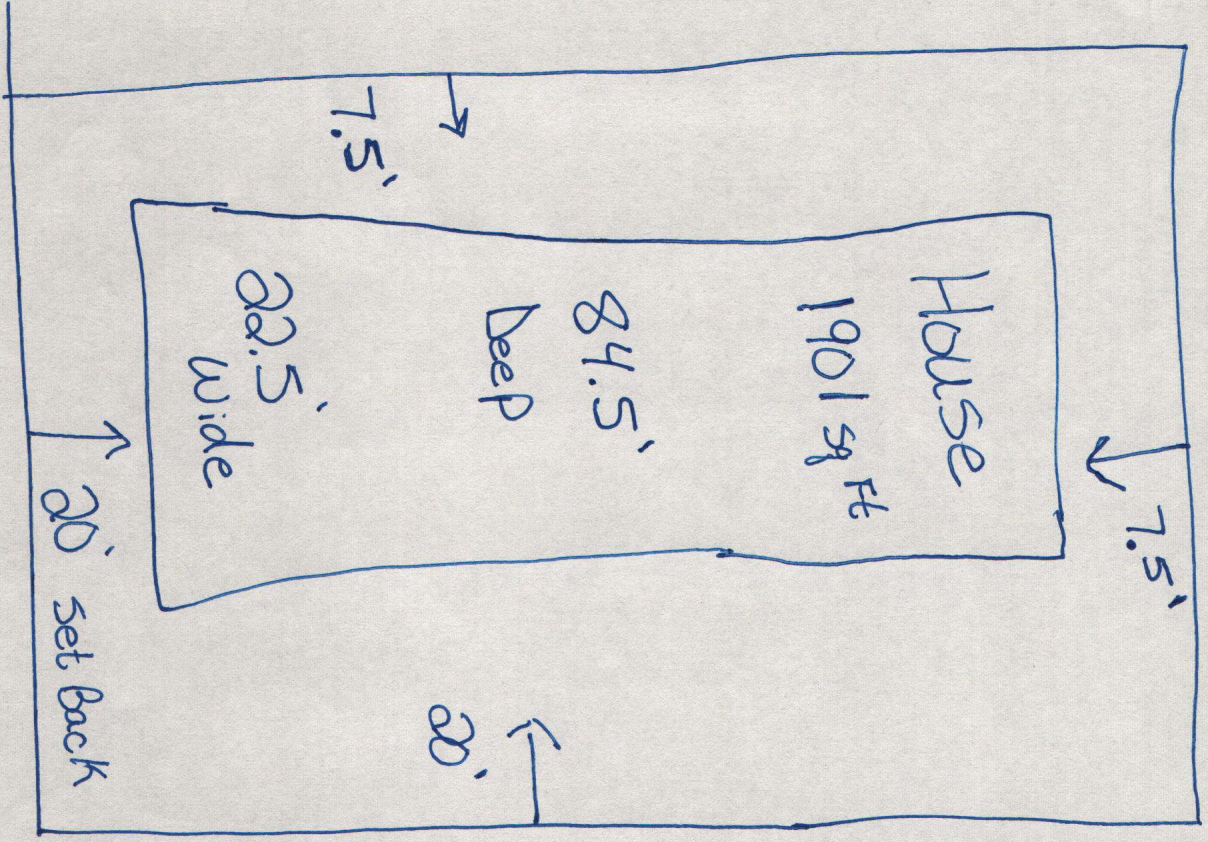 7.5'
House
1901 sq Ft
84.5'
Deep
20'
7.5'
22.5'
wide
20' set Back